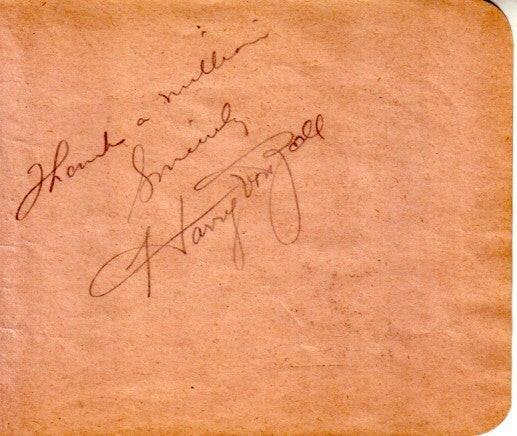 Thanks a million
Sincerely
Harry Von Zell